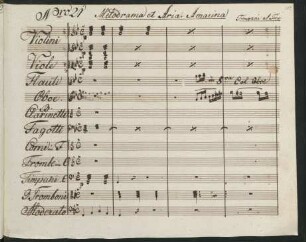 Nro 21 Melodrama et Aria Amarina
Violini
Viole
Flauti
Oboe
Col Oboe
Clarinetti
Fagotti
Corni in F
Trombe
Timpani
3 Tromboni
Moderato